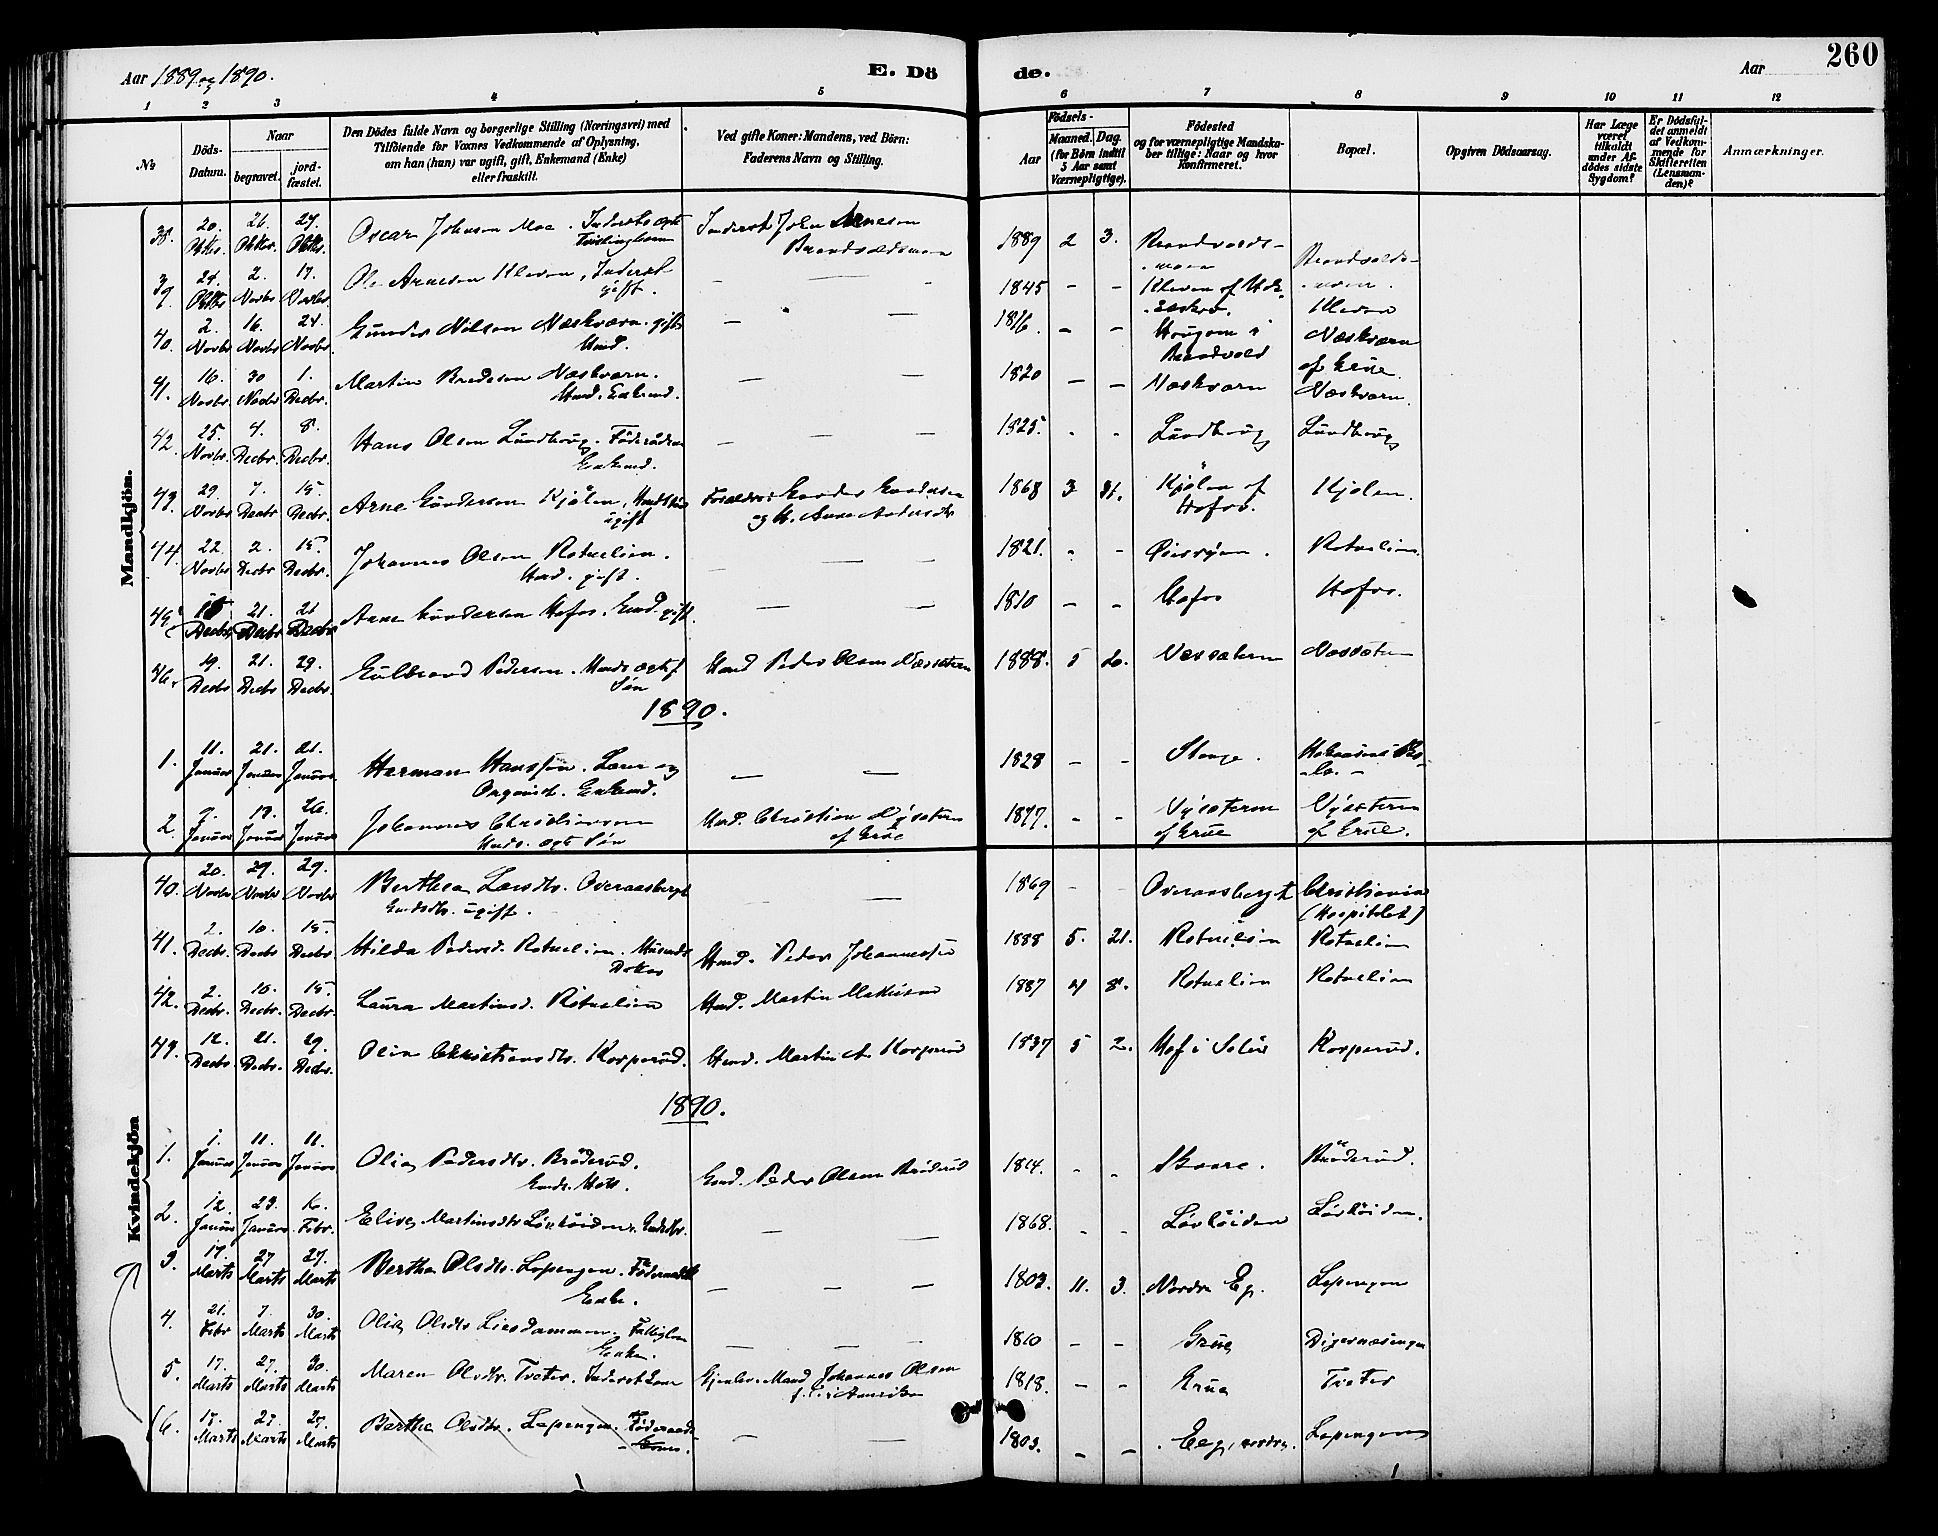 Aar 1889 og 1890.
E. Dö
de.
Aar
260
1 2 3 4 5 6 7 8 9 10 11 12
№
Döds-
Datum.
Naar
begravet.
jord-
fæstet.
Den Dödes fulde Navn og borgerlige Stilling (Næringsvei) med
Tilföiende for Voxnes Vedkommende af Oplysning,
om han (hun) var ugift, gift, Enkemand (Enke)
eller fraskilt.
Ved gifte Koner: Mandens, ved Börn:
Faderens Navn og Stilling.
Födsels-
Aar
Maaned. Dag.
(for Börn indtil
5 Aar samt
Værnepligtige).
Födested
og for værnepligtige Mandska-
ber tillige: Naar og hvor
Konfirmeret.
Bopæl.
Opgiven Dödsaarsag.
Har Læge
været
tilkaldt
under Af-
dödes sidste
Sygdom?
Er Dödsful-
det anmeldt
af Vedkom-
mende for
Skifteretten
(Lensman-
den)?
Anmærkninger.
Mandkjön.
38. 20. Oktbr. 26. Oktbr. 27. Oktbr. Oscar Johnsen Moe. Inderst John Arnesen 1889 2 3.
39. 24. Oktbr. 2. Novbr. 17. Novbr. Ole Arnesen Kleven, Inderst gift. - - - 1845 - - Kleven Kleven
40. 2. Novbr 16. Novbr 24. Novbr. Gunder Nilsen Næskværn. gift Husmd. - - 1816. - - Brandvold Næskværn af Grue.
41. 16. Novbr. 30 Novbr 1. Decbr. Martin Næskværn. Husmd. Enkemd. - - 1820 - - Næskværn Næskværn.
42. 25. Novbr. 4. Decbr. 8. Decbr. Hans Olsen Lundborg. Enkemd. - - - 1825. - - Lundborg Lundborg
43. 29. Novbr 7. Decbr 15. Decbr. Arne Gundersen Kjölen, ugift Forældre: 1868 3 31. Kjölen af Hofos. Kjolen.
44. 22. Novbr 2. Decbr 15. Decbr. Johannes Olsen Rotnelien. Husmd. gift. - - - 1821. - - Rotnelien.
45. Decbr. 21. Decbr 21 Decbr Arne Gundersen Hofos. gift. - - - 1810 - - Hofos Hofos.
46. 19. Decbr 21. Decbr 29. Decbr. Gulbrand Pedersen. Husmds ægtef. Sön Husmd Peder Olsen Næssætern 1888. 5 20. Næssætern Næssætern
1890.
1. 11. Januar 21. Januar 21. Januar Herman Hanssen. Lærer og Organist. Enkemd. - - 1828 - - Stange.
2. 9. Januar 19. Januar 26. Januar Johannes Christiansen Husmds. ægte Sön Husmd. Christian Nysætern af Grue 1877. - - Nysætern af Grue Nysætern af Grue.
Kvindekjön
40. 20. Novbr 29. Novbr 29. Novbr Berthea Larsdtr. Overaasberget ugift. - - 1869 - - Overaasberget Christiania (Hospitalet)
41. 2. Decbr. 10. Decbr 15. Decbr. Hilda Pedersd. Rotnelien. Husmds Datter Husmd. Peder Johannessen 1888 5. 21. Rotnelien Rotnelien
42. 2. Decbr. 10. Decbr. 15. Decbr. Laura Martinsd. Rotnelien Husmd. Martin 1887 4 8. Rotnelien Rotnelien
43. 12. Decbr. 21. Decbr. 29. Decbr. Olia Christiansdtr. Korperud. Husmd. Martin Korperud 1837 5 2. Hof i Solör Korperud.
1890.
1. 1. Januar 11. Januar 11. Januar Olia Pedersdtr. Bröderud. Gmd. Peder Olsen Bröderud 1814. - - Skaare. Bröderud.
2. 12. Januar 23. Januar 16. Febr. Elise Martinsdtr Lövhöiden. - - 1868. - - Lövhöiden Lövhöiden.
3. 17. Marts 27 Marts 27. Marts Berthe Olsdtr. Lopengen. Enke. - - - 1803. 11. 3. Nordre Eg. Lopengen
4. 21. Febr 7. Marts 30. Marts Olia Olsdtr Liesdammen. Enke. - - - 1810 - - Grue Digernæsengen
5. 17. Marts 27. Marts 30. Marts Maren Olsdtr. Tveter. Mand Johannes Olsen i Amerika 1818. - - Grue Tveter
6. 17. Marts 27. Marts 27. Marts Berthe Olsdtr. Lopengen. - - 1803. - - Lopengen